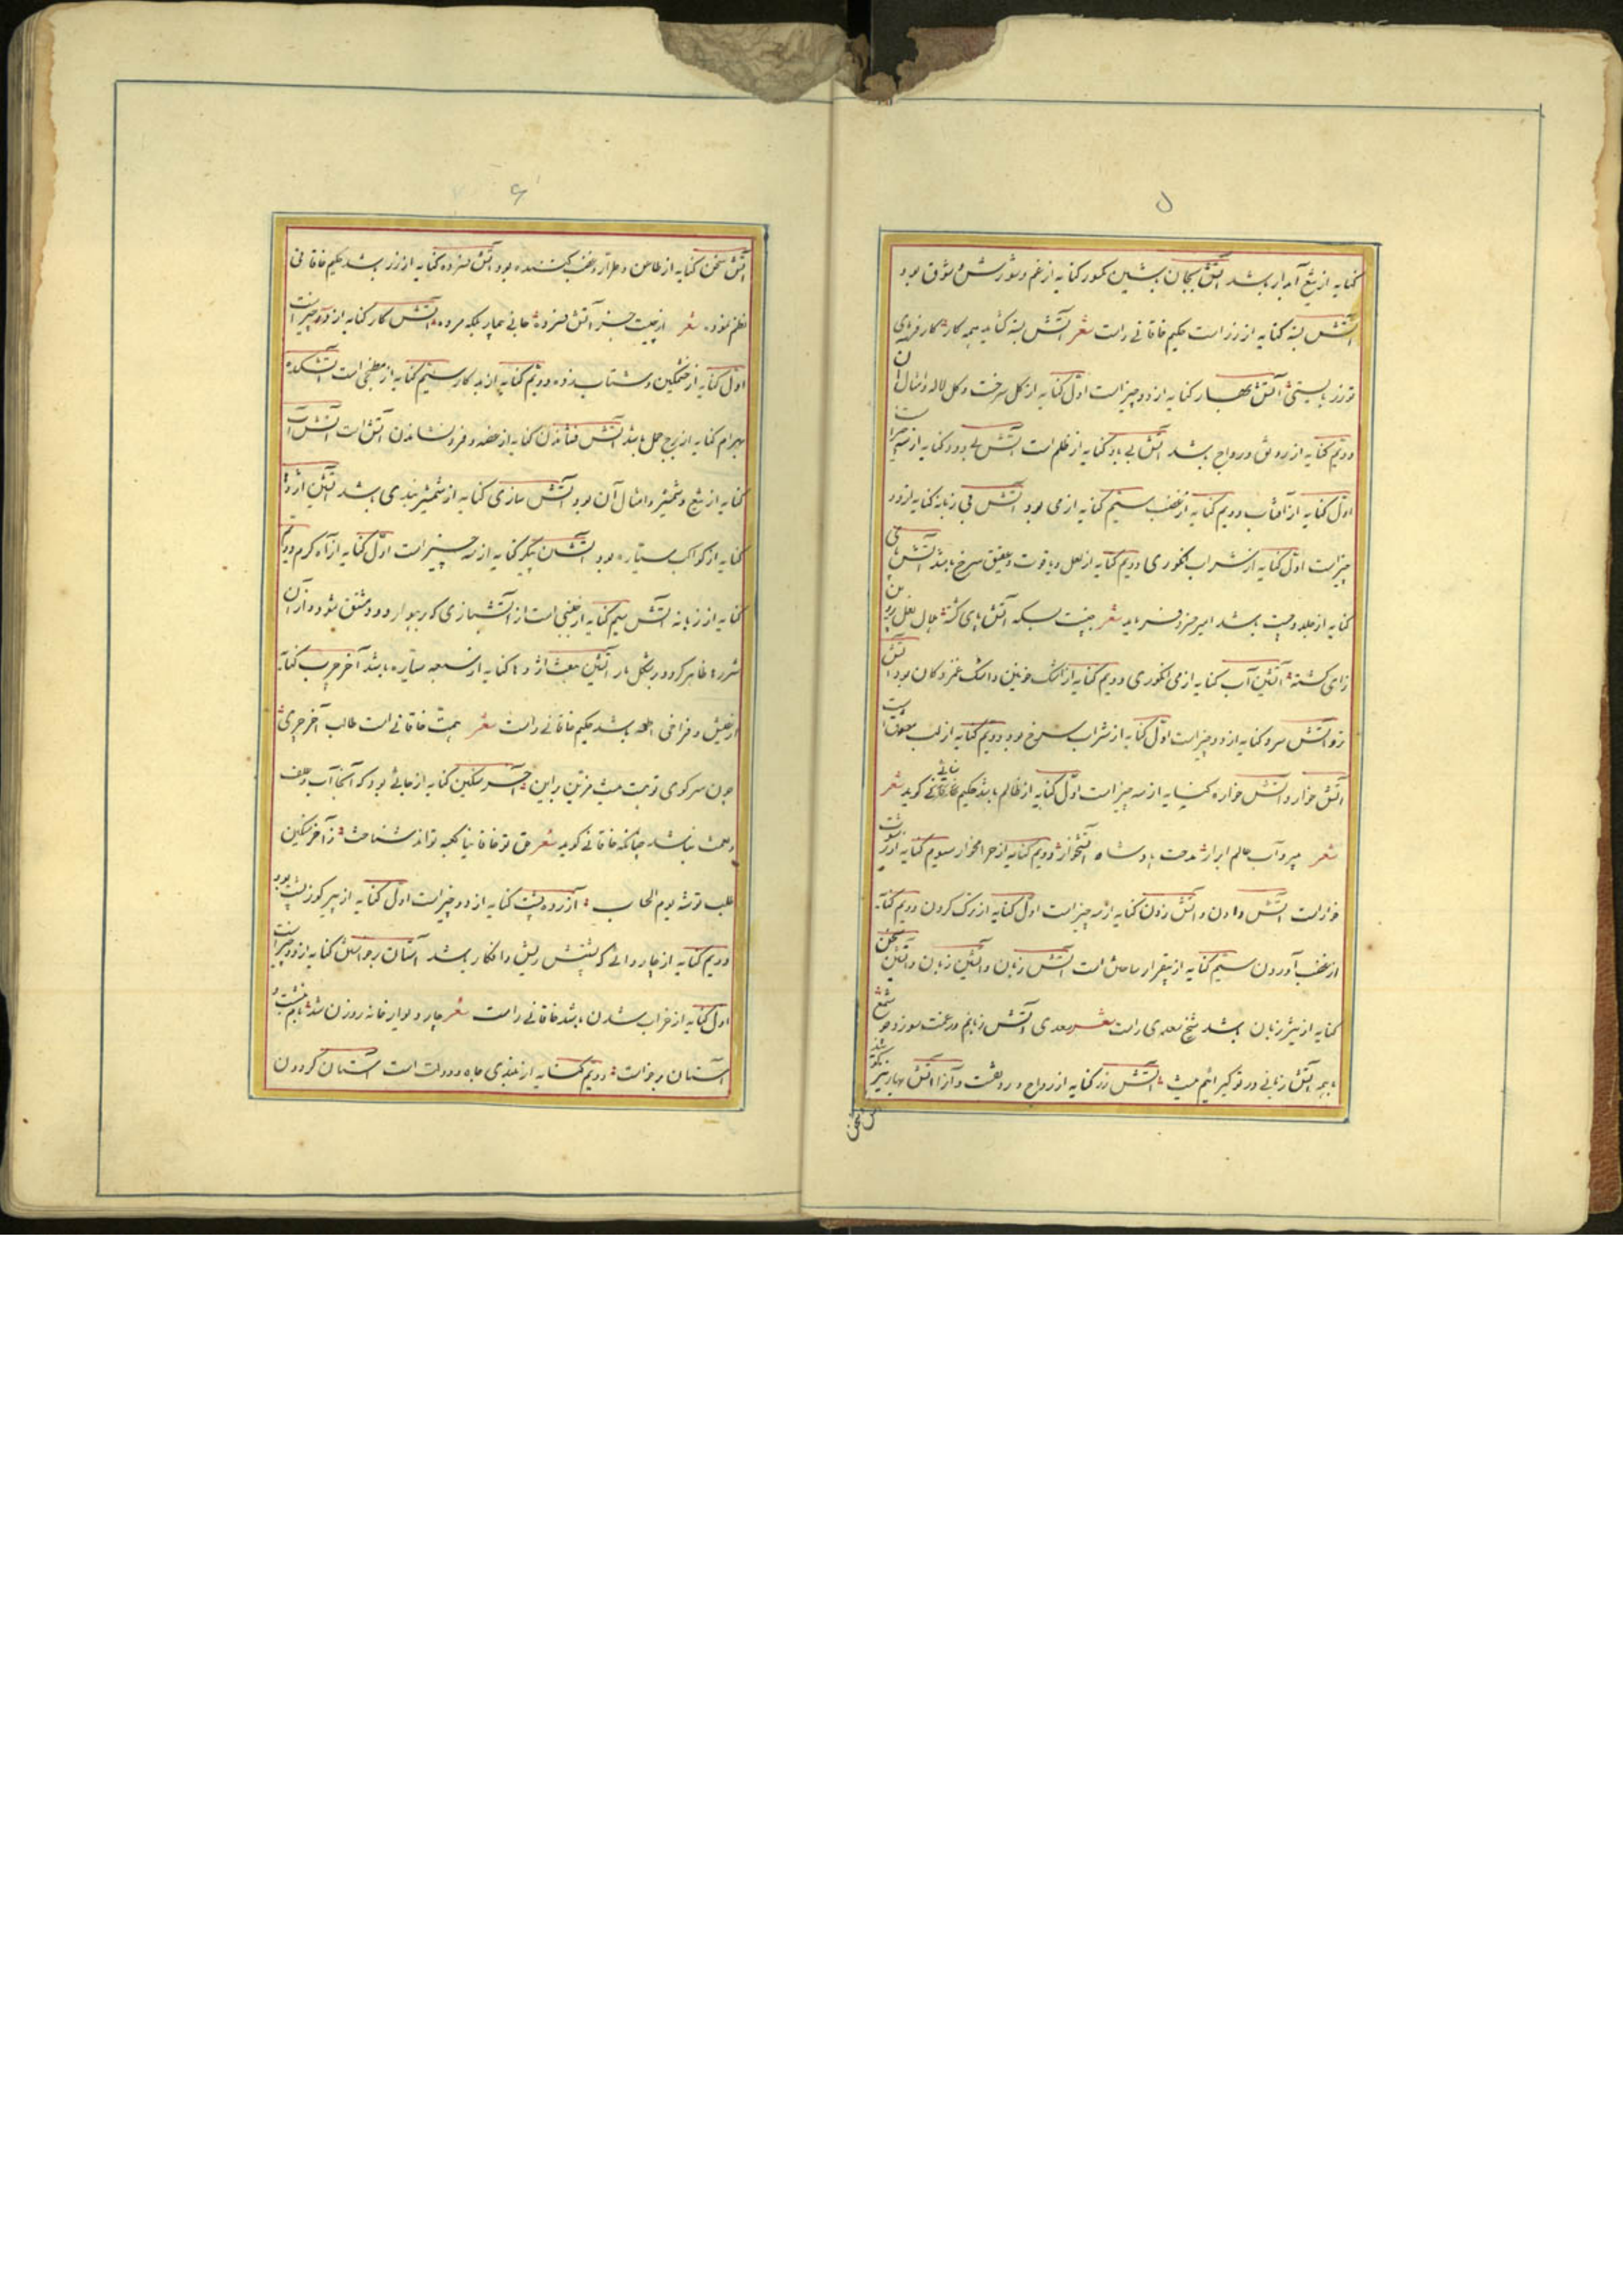 ۵
کنایه از تیغ آبدار باشد آتش بیجان بشین کمور کنایه از غم و شورش شوق بود
آتش بسته کنایه از زر است حکیم خاقانی راست شعر آتش بسته کشاید همه کار کار فرمای
تو زر بایستی آتش بهار کنایه از دو چیز است اول کنایه از گل سرخ و گل لاله و امثال آن
دویم کنایه از رونق و رواج باشد آتش بی باد کنایه از ظلم است آتش بی دود کنایه از سه چیز است
اول کنایه از آفتاب دویم کنایه از غضب سیم کنایه از می بود آتش بی زبانه کنایه از دو
چیز است اول کنایه از شراب انگوری دویم کنایه از لعل و یاقوت و عقیق سرخ باشد آتش پای
کنایه از جلد و چست باشد امیر خسرو فرماید شعر بسکه آتش پای گشته لعل
زای گشته آتشین آب کنایه از می انگوری دویم کنایه از اشک خونین و اشک غمزدگان بود آتش
تر و آتش سرد کنایه از دو چیز است اول کنایه از شراب سرخ بود دویم کنایه از لب معشوق است
آتش خوار و آتش خواره کنایه از سه چیز است اول کنایه از ظالم باشد حکیم خاقانی گوید شعر
شعر ببرد آب عالم ابرار مدحت پادشاه آتشخوار دویم کنایه از حرامخوار سیوم کنایه از رشوت
خوار است آتش دادن و آتش زدن کنایه از سه چیز است اول کنایه از ترک کردن دویم کنایه
از غضب آوردن سیم کنایه از بیقرار ساختن است آتش زبان و آتشین زبان و آتشین سخن
کنایه از تیز زبان باشد شیخ سعدی راست شعر سعدی آتش زبانم در غمت سوزد چو شمع
با همه آتش زبانی در تو گیرائیم نیست آتش زر کنایه از رواج و رونقست و آنرا آتش بهار نیز گویند
آتش سخن
۶
آتش سخن کنایه از طاعن و طرار و غضب کننده بود آتش فسرده کنایه از زر باشد حکیم خاقانی
نظم نموده شعر از چیست جز آتش فسرده خاقانی بیمار بلکه مرده آتش کار کنایه از دو چیز است
اول کنایه از خشمگین و شتاب زده دویم کنایه از بد کار سیم کنایه از مطبخی است آتشکده
بهرام کنایه از برج حمل باشد آتش فشاندن کنایه از خنده و فرو نشاندن آتش است آتش آب
کنایه از تیغ و شمشیر و امثال آن بود آتش سازی کنایه از شمشیر بندی باشد آتشین اژدها
کنایه از کواکب سیاره بود آتشین پیکر کنایه از سه چیز است اول کنایه از آه گرم دویم
کنایه از زبانه آتش سیم کنایه از جنسی است از آتشبازی که بر هوا رود و مشتق شود و از آن
شررها ظاهر گردد بشکل مار آتشین هفت اژدها کنایه از سبعه سیاره باشد آخر چرب کنایه
از عیش و فراخی باشد حکیم خاقانی راست شعر همت خاقانی است طالب آخر چرب
چون سر کوی تو هست نیست مزین براین آخر سنگین کنایه از جائی بود که آنجا آب و علف
نباشد چنانکه خاقانی گوید شعر حق تو خاقانیا کعبه تواند شناخت ز آخر سنگین
طلب توشه یوم الحساب آزرده پشت کنایه از دو چیز است اول کنایه از پیر کوز پشت بود
دویم کنایه از چاروائی که پشتش ریش و افکار باشد آستان برخواستن کنایه از دو چیز است
اول کنایه از خراب شدن باشد خاقانی راست شعر چار دیوار خانه روزن شد بام بنشست و
آستان برخاست دویم کنایه از بلندی جاه و دولت است آستان کردون